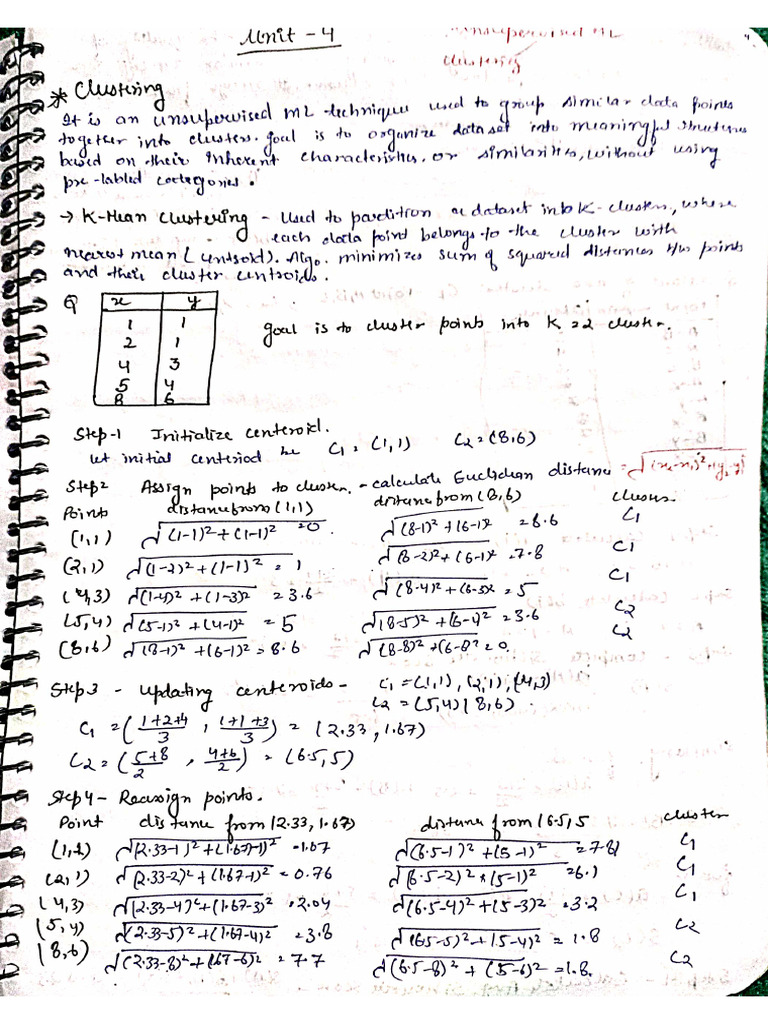 Unit - 4
unsupervised ML
clustering
* Clustering
It is an unsupervised ML technique used to group similar data points
together into clusters. goal is to organize dataset into meaningful structures
based on their inherent characteristics, or similarities, without using
pre-labled categories.
→ K-Mean Clustering - Used to partition a dataset into K-clusters, where
each data point belongs to the cluster with
nearest mean (centroid). Algo. minimizes sum of squared distances b/w points
and their cluster centroids.
Q x y
1 1
2 1
4 3
5 4
8 6
goal is to cluster points into K=2 cluster.
Step-1 Initialize centeroid.
let initial centeriod be C1 = (1,1) C2 = (8,6)
Step2 Assign points to cluster. - calculate Euclidean distance = √(x-x1)²+(y-y)²
Points distance from (1,1) distance from (8,6) cluster
(1,1) √(1-1)²+(1-1)² = 0 √(8-1)²+(6-1)² = 8.6 C1
(2,1) √(1-2)²+(1-1)² = 1 √(8-2)²+(6-1)² = 7.8 C1
(4,3) √(1-4)²+(1-3)² = 3.6 √(8-4)²+(6-3)² = 5 C1
(5,4) √(5-1)²+(4-1)² = 5 √(8-5)²+(6-4)² = 3.6 C2
(8,6) √(8-1)²+(6-1)² = 8.6 √(8-8)²+(6-8)² = 0. C2
Step3 - updating centeroids - C1 = (1,1), (2,1), (4,3)
C2 = (5,4) (8,6)
C1 = (1+2+4/3, 1+1+3/3) = (2.33, 1.67)
C2 = (5+8/2, 4+6/2) = (6.5, 5)
Step4 - Reassign points.
Point distance from (2.33, 1.67) distance from (6.5, 5 cluster
(1,1) √(2.33-1)²+(1.67-1)² = 1.67 √(6.5-1)²+(5-1)² = 7.81 C1
(2,1) √(2.33-2)²+(1.67-1)² = 0.76 √(6.5-2)²+(5-1)² = 6.1 C1
(4,3) √(2.33-4)²+(1.67-3)² = 2.04 √(6.5-4)²+(5-3)² = 3.2 C1
(5,4) √(2.33-5)²+(1.67-4)² = 3.8 √(6.5-5)²+(5-4)² = 1.8 C2
(8,6) √(2.33-8)²+(1.67-6)² = 7.7 √(6.5-8)²+(5-6)² = 1.8. C2